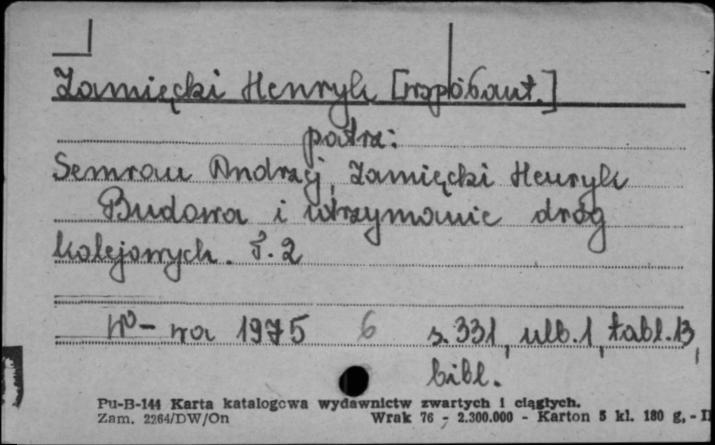 Zamięcki Henryk [współaut.]
patrz:
Semrau Andrzej, Zamięcki Henryk
Budowa i utrzymanie dróg
kolejowych. T. 2
W-wa 1975 6 s. 331, ulb. 1, tabl. 13,
bibl.
Pu-B-144 Karta katalogowa wydawnictw zwartych i ciągłych.
Zam. 2264/DW/On Wrak 76 - 2.300.000 - Karton 5 kl. 180 g. - II